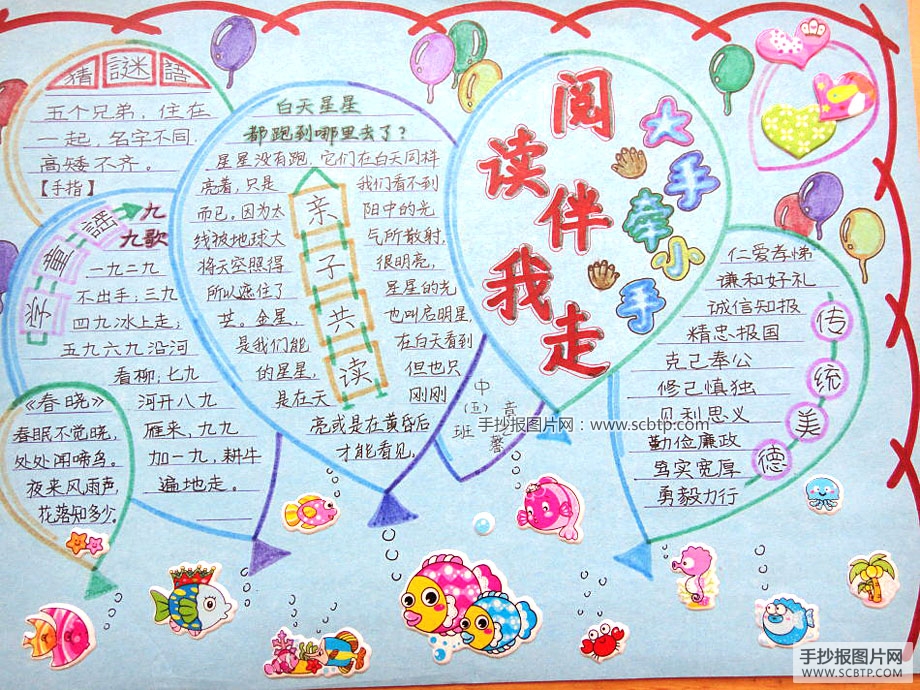 猜謎語
五个兄弟，住在
一起，名字不同，
高矮不齐。
【手指】
学童謡
九九歌
一九二九
不出手；三九
四九冰上走；
五九六九沿河
看柳；七九
河开八九
雁来，九九
加一九，耕牛
遍地走。
《春晓》
春眠不觉晓，
处处闻啼鸟。
夜来风雨声，
花落知多少。
白天星星
都跑到哪里去了？
星星没有跑，它们在白天同样
亮着，只是 我们看不到
而已。因为太 阳中的光
线被地球大 气所散射，
将天空照得 很明亮，
所以遮住了 星星的光
芒。金星， 也叫启明星，
是我们能 在白天看到
的星星， 但也只
是在天 刚刚
亮或是在黄昏后
才能看见。
亲子共读
阅读伴我走
大手牵小手
中（五）班
仁爱孝悌
谦和好礼
诚信知报
精忠报国
克己奉公
修己慎独
见利思义
勤俭廉政
笃实宽厚
勇毅力行
传统美德
手抄报图片网：www.scbtp.com
手抄报图片网
WWW.SCBTP.COM